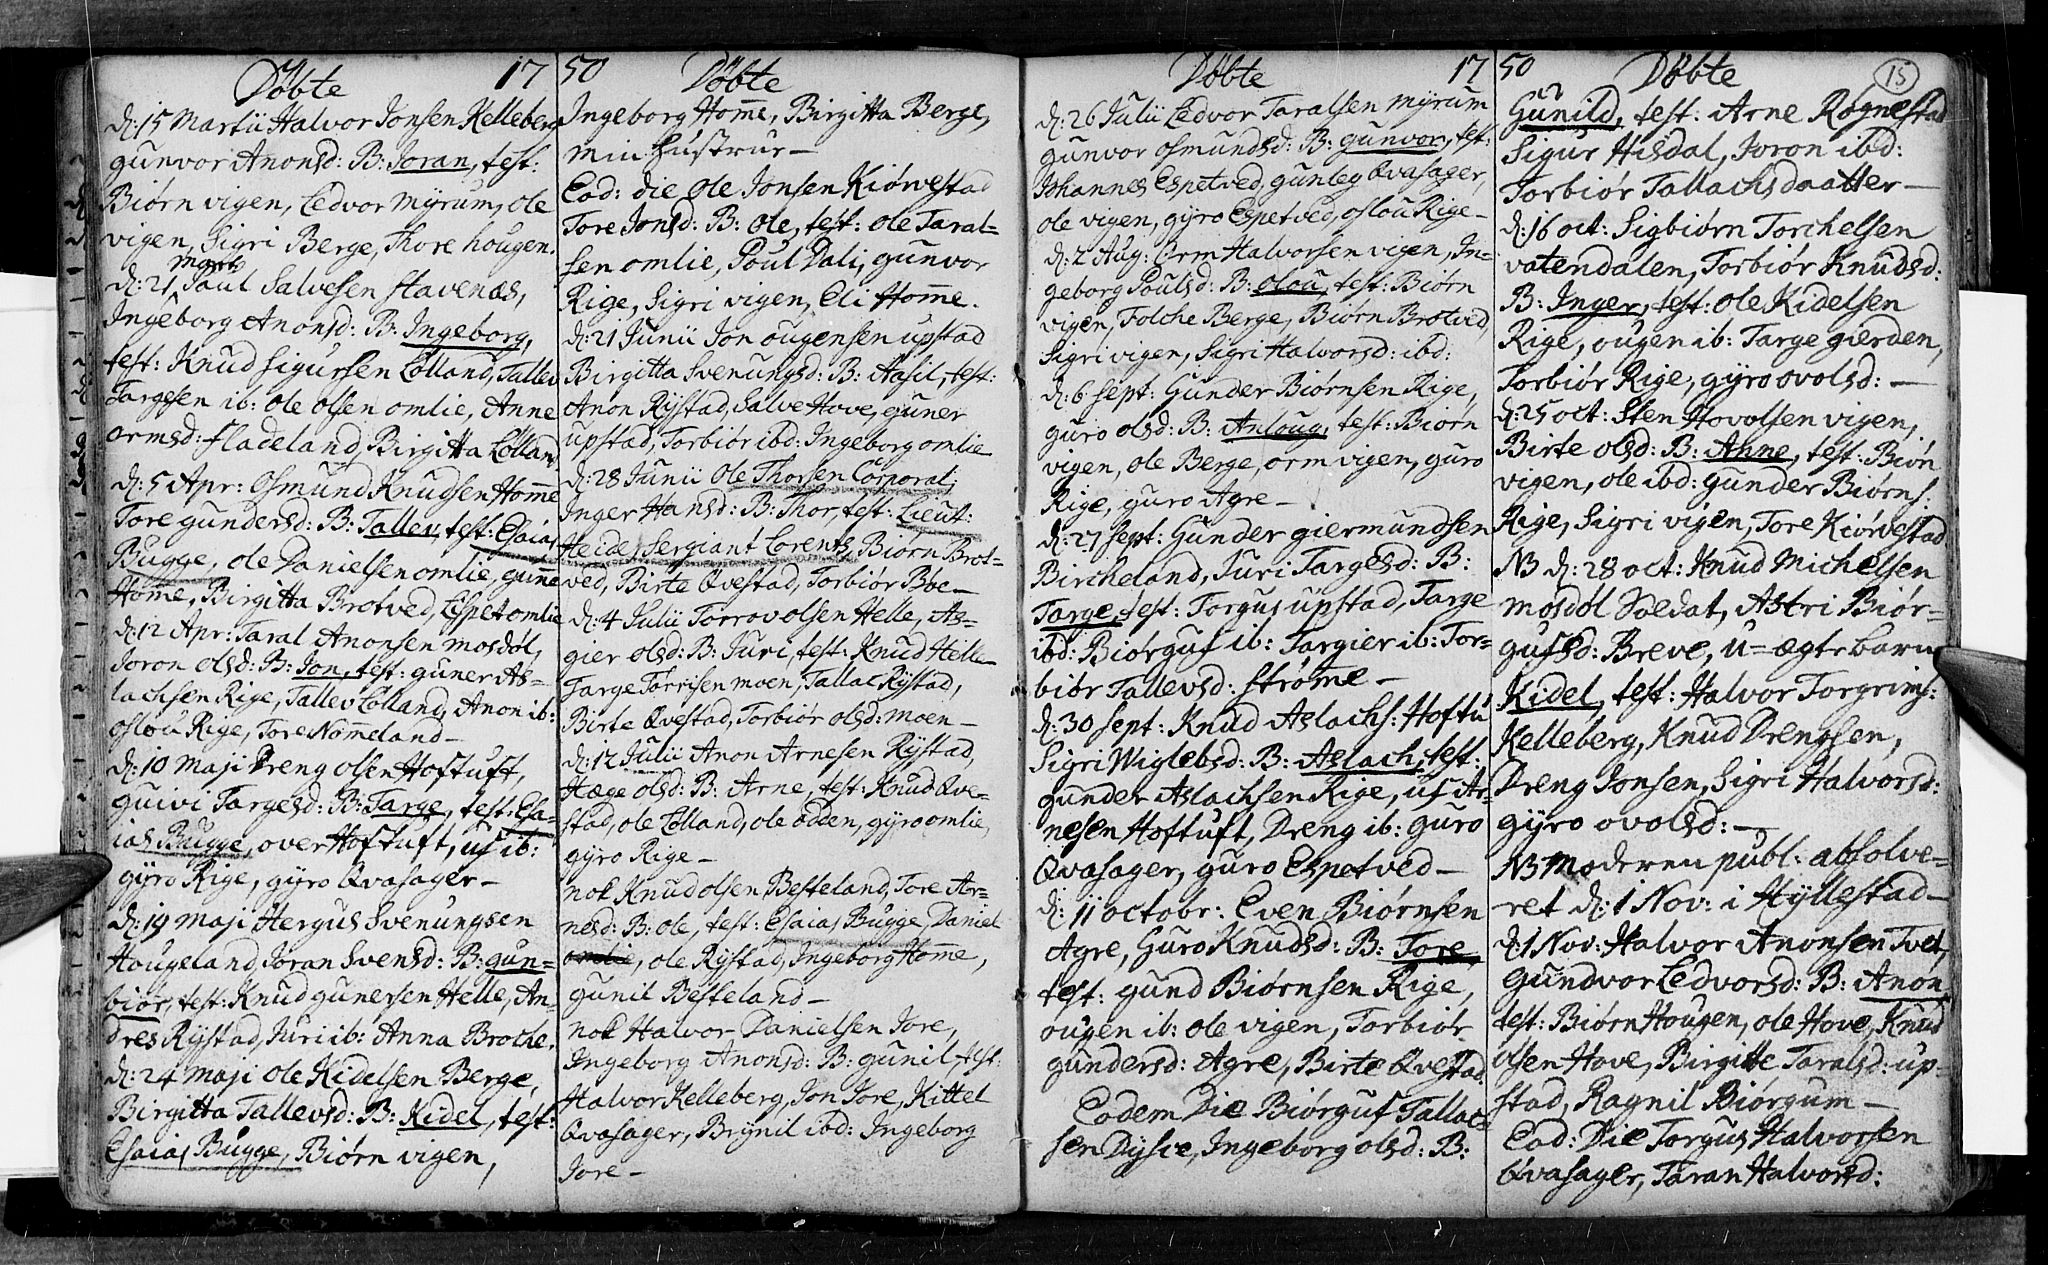 Døbte 17
d: 15 Martii Halvor Jonsen Kelleberg
gunvor Anonsd: B: Joran, test:
Biørn vigen, Ledvor myrum, ole
vigen, Sigri Berge, Thore hougen.
d: 21 Martii Paul Salvesen Stavenæs,
Ingeborg Anonsd: B: Ingeborg,
test: Knud Sigursen Lølland, Tallev
Targesen ib: ole olsen omlie, Anne
ormsd: fladeland, Birgitta Lølland
d: 5 Apr: Osmund Knudsen Homme
Tore gundersd: B: Tallev, test: Esaias
Bugge, ole Danielsen omlie, gune
Homme, Birgitta Brotved, Espet omlie
d: 12 Apr: Taral Anonsen mosdøl,
Joron olsd: B: Jon, test: guner As-
lachsen Rige, Tallev Lølland, Anon ib:
oslou Rige, Tore Nomeland –
d: 10 maji Dreng olsen Hoftuft,
guivi Targesd: B: Targe, test: Esa-
ias Bugge, over Hoftuft, uf ib:
gyro Rige, gyro Qvasager –
d: 19 maji Hergus Svenungsen
Hougeland, Joran Svensd: B: gun-
biør, test: Knud gunersen Helle, An-
dres Rystad, Juri ib: Anna Broche.
d: 24 maji ole Kidelsen Berge,
Birgitta Tallevsd: B: Kidel, test:
Esaias Bugge, Biørn vigen,
50 Døbte
Ingeborg Home, Birgitta Berge,
min Hustrur –
Ead: die ole Jonsen Kiørvestad
Tore Jonsd: B: ole, test: ole Taral-
sen omlie, Poul Dali, gunvor
Rige, Sigri vigen, Eli Home.
d: 21 Junii Jon ougensen upstad
Birgitta Svenungsd: B: Aasil, test:
Anon Rystad, Salve Hove, guner
upstad, Torbiør ibd: Ingeborg omlie
d: 28 Junii ole Thorsen Corporal,
Inger Hansd: B: Thor, test: Lieut:
Heide, Sergiant Lorents, Biørn Brot-
ved, Birte Qvestad, Torbiør Boe –
d: 4 Julii Torrov olsen Helle, As-
gier olsd: B: Juri, test: Knud Helle
Targe Torrisen moen, Tallac Rystad,
Birte Qvestad, Torbiør olsd: moen –
d: 12 Julii Anon Arnesen Rystad,
Hæge olsd: B: Arne, test: Knud Qve-
stad, ole Lølland, ole odden, gyro omlie,
gyro Rige –
nok Knud olsen Besteland, Tore Ar-
nesd: B: ole, test: Esaias Bugge, Daniel
omlie, ole Rystad, Ingeborg Home,
gunil Besteland –
nok Halvor Danielsen Jore,
Ingeborg Anonsd: B: gunil, test:
Halvor Kelleberg, Jon Jore, Kittel
Qvasager, Brynil ibd: Ingeborg
Jore –
Døbte 17
d: 26 Julii Ledvor Taralsen myrum
gunvor osmundsd: B: gunvor, test:
Johannes Espetved, gunley Qvasager,
ole vigen, gyro Espetved, oslou Rige –
d: 2 Aug: Orm Halvorsen vigen, In-
geborg Poulsd: B: olou, test: Biørn
vigen, Folche Berge, Biørn Brotved,
Sigri vigen, Sigri Halvorsd: ibd:
d: 6 sept: Gunder Biørnsen Rige,
guro olsd: B: Anloug, test: Biørn
vigen, ole Berge, orm vigen, guro
Rige, guro Agre –
d: 27 sept: Gunder giermundsen
Bircheland, Juri Targesd: B:
Targe, test: Torgus upstad, Targe
ibd: Biørguf ib: Targier ib: Tor-
biør Tallevsd: Strøme –
d: 30 sept: Knud Aslachs: Hoftu
Sigri Wiglebsd: B: Aslach, test:
gunder Aslachsen Rige, uf Ar-
nesen Hoftuft, Dreng ib: guro
Qvasager, guro Espetved –
d: 11 octobr: Even Biørnsen
Agre, Guro Knudsd: B: Tore,
test: gund Biørnsen Rige,
ougen ib: ole vigen, Torbiør
gundersd: Agre, Birte Qvestad.
Eodem Die Biørguf Tallac
sen Dysve, Ingeborg olsd: B:
50 Døbte 15
Gunild, test: Arne Rognestad
Sigur Hisdal, Joron ibd:
Torbiør Tallachsdaatter –
d: 16 oct: Sigbiørn Torchelsen
vatendalen, Torbiør Knudsd:
B: Inger, test: ole Kidelsen
Rige, ougen ib: Targe gierden,
Torbiør Rige, gyro ovolsd: –
d: 25 oct: Sten Hovolsen vigen,
Birte olsd: B: Anne, test: Biørn
vigen, ole ibd: gunder Biørns:
Rige, Sigri vigen, Tore Kiørvestad
NB d: 28 oct: Knud Michelsen
mosdøl Soldat, Astri Biør-
gufsd: Breve, u-ægte barn
Kidel, test: Halvor Torgrims:
Kelleberg, Knud Drengsen,
Dreng Jonsen, Sigri Halvorsd:
gyro ovolsd: –
NB moderen publ: absolve-
ret d: 1 Nov: i Hyllestad –
d: 1 Nov: Halvor Anonsen Tveit,
gundvor Ledvorsd: B: Anon
test: Biørn Hougen, ole Hove, Knud
olsen Hove, Birgitte Taralsd: up-
stad, Ragnil Biørgum –
Ead: Die Torgus Halvorsen
Qvasager, Taran Halvorsd: